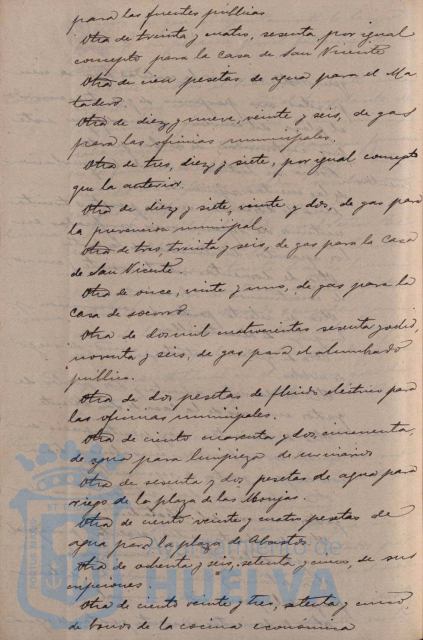 para las fuentes publicas.
Otra de treinta y cuatro, sesenta, por igual
concepto para la casa de San Vicente
Otra de cien pesetas de agua para el Ma-
tadero.
Otra de diez y nueve, veinte y seis, de gas
para las oficinas municipales.
Otra de tres, diez y siete, por igual concepto
que la anterior.
Otra de diez y siete, veinte y dos, de gas para
la prevencion municipal.
Otra de tres, treinta y seis, de gas para la casa
de San Vicente.
Otra de once, veinte y uno, de gas para la
casa de socorro.
Otra de dos mil cuatrocientas sesenta y ocho,
noventa y seis, de gas para el alumbrado
publico.
Otra de dos pesetas de fluido electrico para
las oficinas municipales.
Otra de ciento cuarenta y dos, cincuenta,
de agua para limpieza de urinarios
Otra de sesenta y dos pesetas de agua para
riego de la plaza de las Monjas.
Otra de ciento veinte y cuatro pesetas de
agua para la plaza de Abastos.
Otra de ochenta y seis, setenta y cinco, de sus
cripciones.
Otra de ciento veinte y tres, setenta y cinco,
de bonos de la cocina económica
Ayuntamiento de
HUELVA